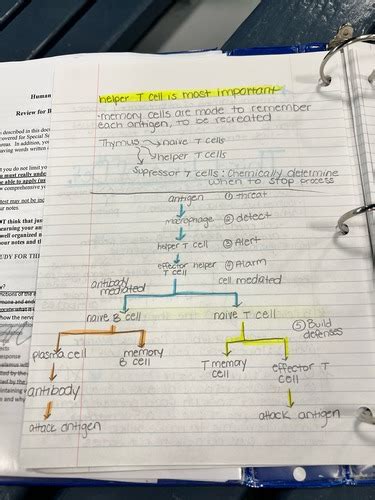 Human
Review for B
helper T cell is most important
-memory cells are made to remember
each antigen, to be recreated
Thymus naive T cells
helper T cells
Supressor T cells: Chemically determine
when to stop process
antigen ① threat
macrophage ② detect
helper T cell ③ Alert
effector helper ④ Alarm
T cell
antibody mediated
cell mediated
naive B cell
naive T cell
⑤ Build defenses
plasma cell
memory B cell
T memory cell
effector T cell
antibody
attack antigen
attack antigen
described in this doc
covered for Special Se
In addition, yo
you do not limit yo
must really under
able to apply
comprehensive
test may not be in
our notes.
think that just
earning your
well organized
our notes and th
UDY FOR THE
how the nerv